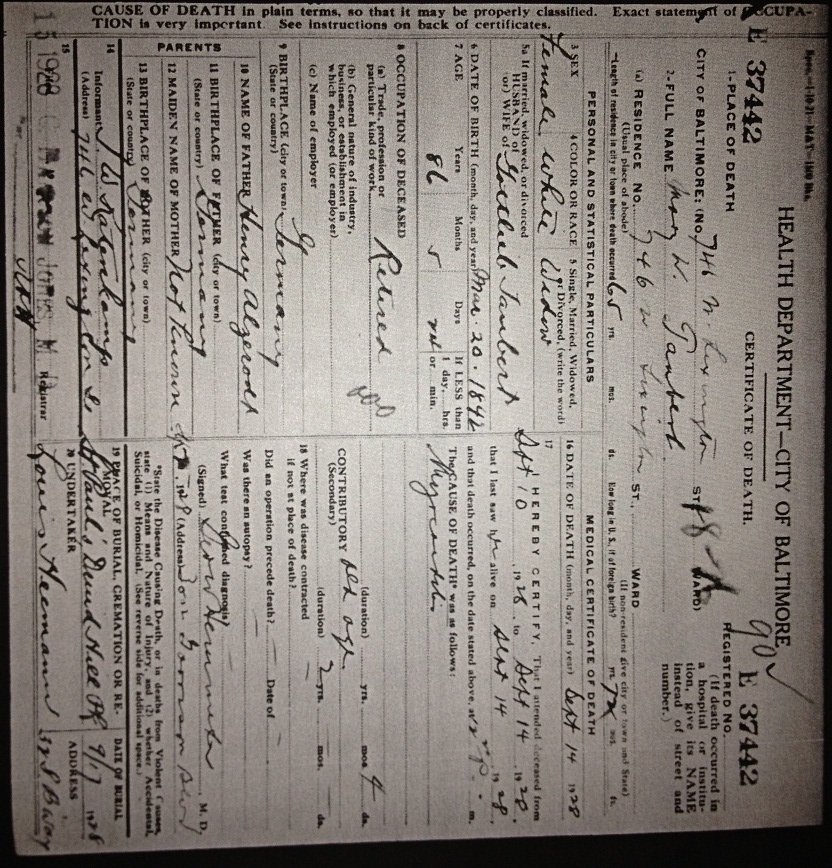 CAUSE OF DEATH in plain terms, so that it may be properly classified. Exact statement of OCCUPA-
TION is very important. See instructions on back of certificates.
HEALTH DEPARTMENT—CITY OF BALTIMORE
CERTIFICATE OF DEATH.
E 37442
E 37442
90
1-PLACE OF DEATH
CITY OF BALTIMORE: (No. 746 W. Lexington ST. 18 WARD)
REGISTERED NO.
(If death occurred in
a hospital or institu-
tion, give its NAME
instead of street and
number.)
2-FULL NAME Mary W. Taubert
(a) RESIDENCE NO. 746 W Lexington ST., WARD
(Usual place of abode) (If non-resident give city or town and State)
Length of residence in city or town where death occurred 65 yrs. mos. ds. How long in U. S., if of foreign birth? yrs. 72 mos. ds.
PERSONAL AND STATISTICAL PARTICULARS
3 SEX 4 COLOR OR RACE 5 Single, Married, Widowed, or Divorced, (write the word)
Female White Widow
5a If married, widowed, or divorced
HUSBAND of
(or) WIFE of Gottlieb Taubert
6 DATE OF BIRTH (month, day, and year) Mar. 20. 1842
7 AGE Years Months Days If LESS than
1 day, hrs.
or min.
86 5
8 OCCUPATION OF DECEASED
(a) Trade, profession or
particular kind of work Retired
(b) General nature of industry,
business, or establishment in
which employed (or employer)
(c) Name of employer
9 BIRTHPLACE (city or town) Germany
(State or country)
PARENTS
10 NAME OF FATHER Henry Algerodt
11 BIRTHPLACE OF FATHER (city or town)
(State or country) Germany
12 MAIDEN NAME OF MOTHER Not Known
13 BIRTHPLACE OF MOTHER (city or town)
(State or country) Germany
14
Informant J. W.
(Address) 746 W Lexington St
15
1928
Registrar
MEDICAL CERTIFICATE OF DEATH
16 DATE OF DEATH (month, day, and year) Sept 14 1928
17
I HEREBY CERTIFY, That I attended deceased from
Sept 10, 1928, to Sept 14, 1928,
that I last saw her alive on Sept 14 1928,
and that death occurred, on the date stated above, at m.
The CAUSE OF DEATH* was as follows:
Myocarditis
(duration) yrs. mos. 4 ds.
CONTRIBUTORY Old age.
(Secondary)
(duration) 2 yrs. mos. ds.
18 Where was disease contracted
if not at place of death?
Did an operation precede death? Date of
Was there an autopsy?
What test confirmed diagnosis?
(Signed) M. D.
1928 (Address)
*State the Disease Causing Death, or in deaths from Violent Causes,
state (1) Means and Nature of Injury, and (2) whether Accidental,
Suicidal, or Homicidal. (See reverse side for additional space.)
19 PLACE OF BURIAL, CREMATION OR RE-
MOVAL DATE OF BURIAL
St Paul's Druid Hill Pk 9/17 1928
20 UNDERTAKER ADDRESS
Louis Heemann